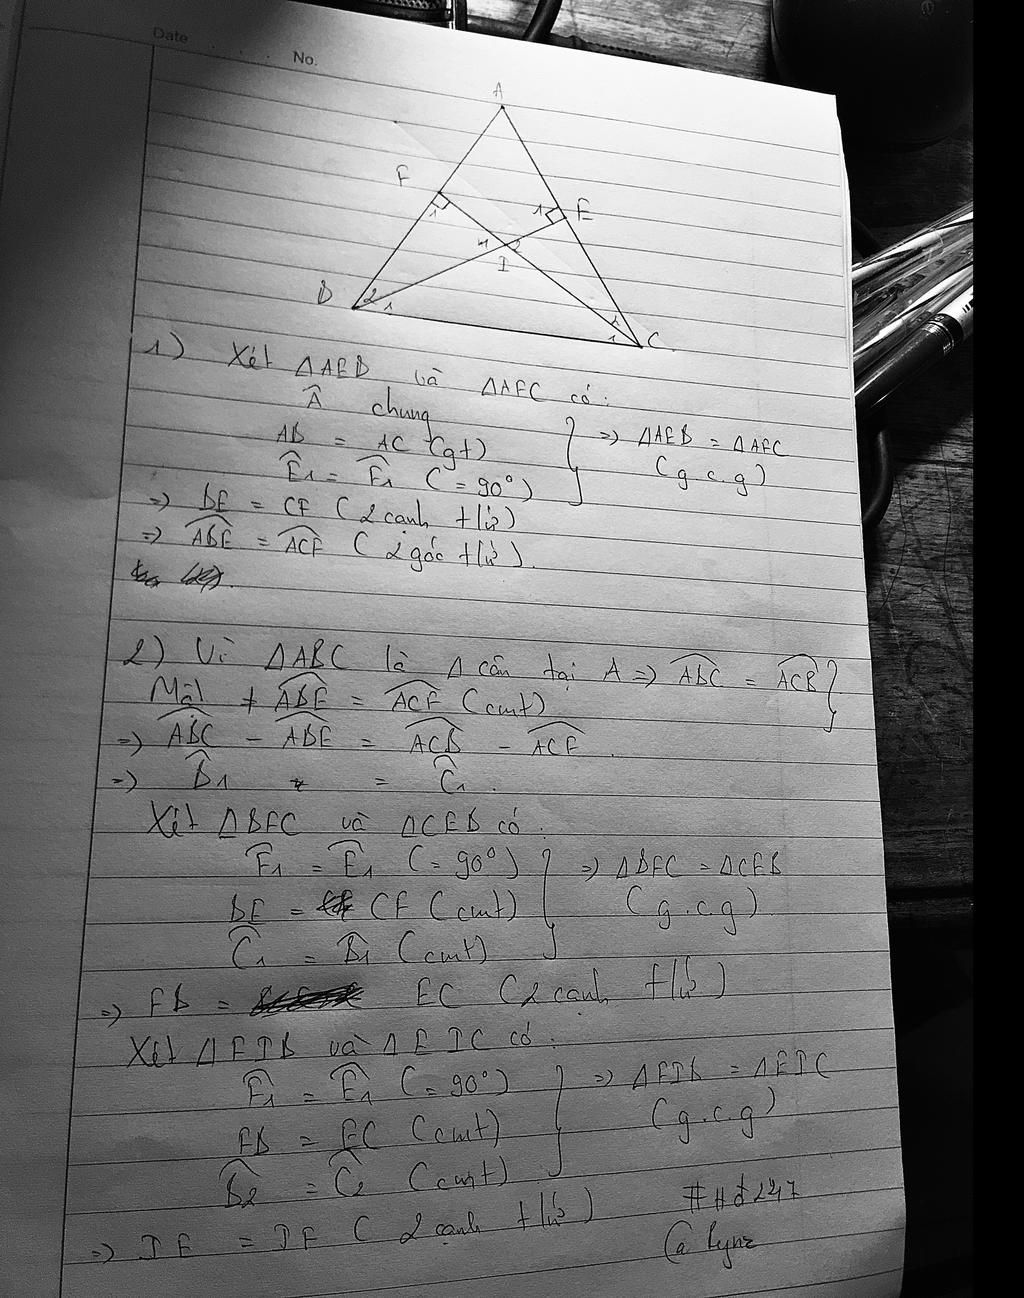 Date
No.
A
F
1
E
1
4
2
I
B
2
1
2
1
C
1) Xét ΔAEB và ΔAFC có:
Â chung
AB = AC (gt)
Ê1 = F̂1 (= 90°)
=> ΔAEB = ΔAFC
(g.c.g)
=> BE = CF (2 cạnh t/ứ)
=> ABE = ACF (2 góc t/ứ).
2) Vì ΔABC là Δ cân tại A => ABC = ACB
Mặt ≠ ABE = ACF (cmt)
=> ABC - ABE = ACB - ACF.
=> B̂1 = Ĉ1.
Xét ΔBFC và ΔCEB có:
F̂1 = Ê1 (= 90°)
BE = CF (cmt)
Ĉ1 = B̂1 (cmt)
=> ΔBFC = ΔCEB
(g.c.g)
=> FB = EC (2 cạnh t/ứ)
Xét ΔFIB và ΔEIC có:
F̂1 = Ê1 (= 90°)
FB = EC (cmt)
B̂2 = Ĉ2 (cmt)
=> ΔFIB = ΔEIC
(g.c.g)
=> IE = IF (2 cạnh t/ứ)